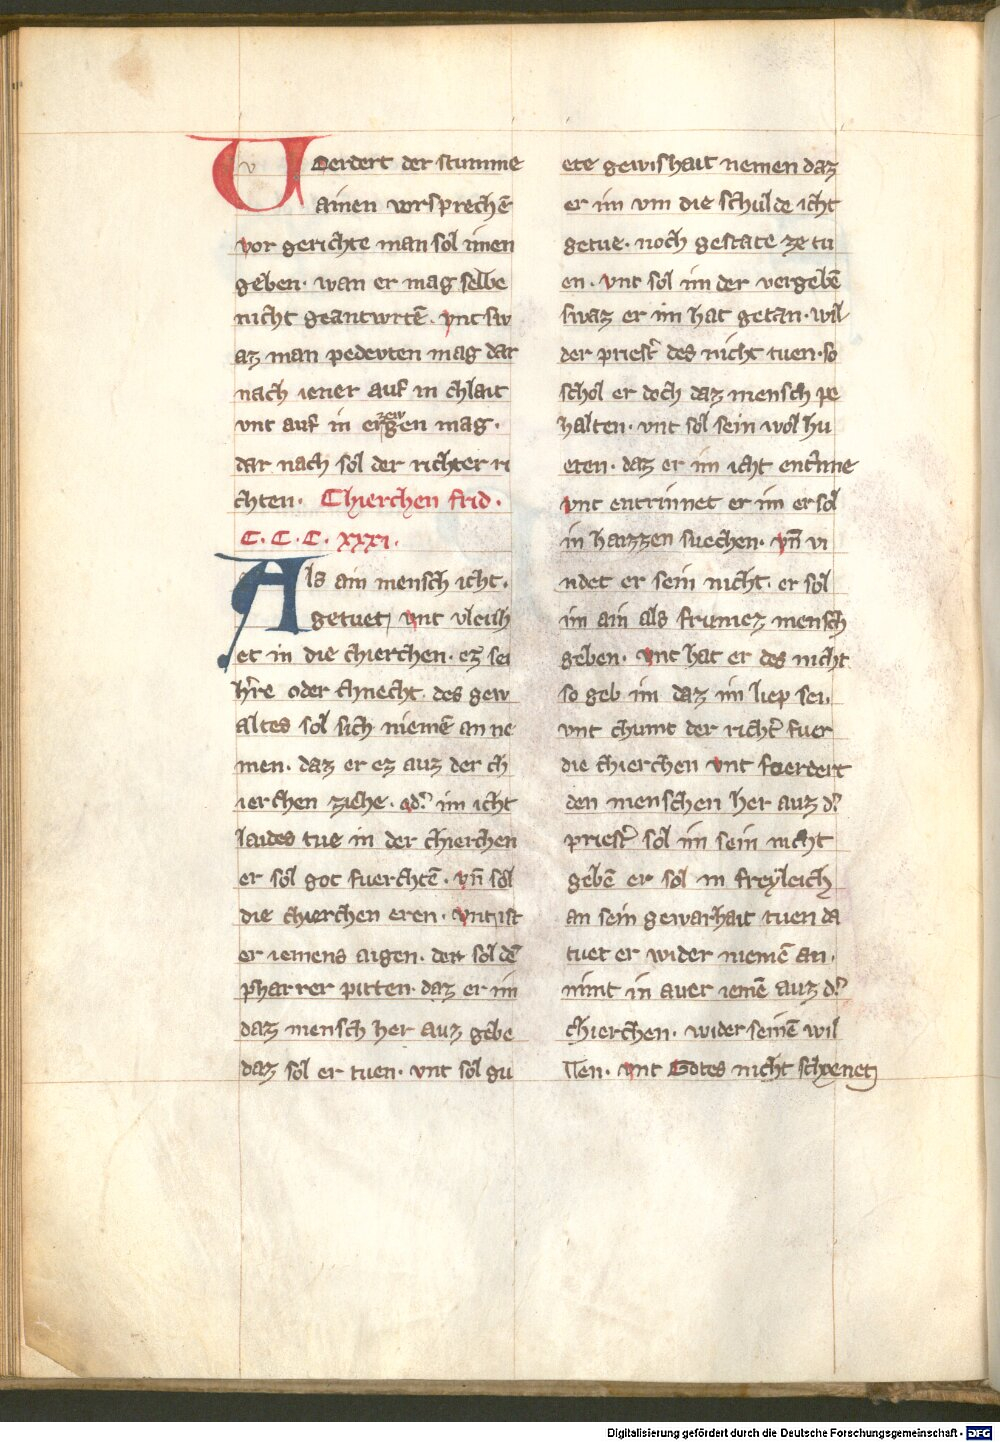 Voerdert der stumme
ainen vorsprechē
vor gerichte man sol imen
geben · wan er mag selbe
nicht geantwrtē · vnt sw
az man pedevten mag dar
nach iener auf in chlait
vnt auf in erzewgen mag ·
dar nach sol der richter ri
chten · Chierchen frid ·
C · C · C · xxxi ·
Als ain mensch icht ·
getuet vnt vleuh
et in die chierchen · ez sei
h'rre oder chnecht · des gew
altes sol sich niemē an ne
men · daz er ez auz der ch
ierchen ziehe · od' im icht
laides tue in der chierchen
er sol got fuerchtē · vn̄ sol
die chierchen eren · vnt ist
er iemens aigen · der sol dē
pharrer pitten · daz er im
daz mensch her auz gebe
daz sol er tuen · vnt sol gu
ete gewishait nemen daz
er im vm die schulde icht
getue · noch gestate ze tu
en · vnt sol im der vergebē
swaz er im hat getan · wil
der priest' des nicht tuen · so
schol er doch daz mensch pe
halten · vnt sol sein wol hu
eten · daz er im icht entrinne
vnt entrinnet er im er sol
in haizzen suechen · vn̄ vi
ndet er sein nicht · er sol
im ain als frumez mensch
geben · vnt hat er des nicht
so geb im daz im liep sei ·
vnt chumt der richt' fuer
die chierchen vnt foerdert
den menschen her auz d'
priest' sol im sein nicht
gebē er sol in freÿleich
an sein gewarhait tuen da
tuet er wider niemē an ·
nimt in auer iemē auz d'
chierchen · wider seinē wil
llen · vnt Gotes nicht schonet
Digitalisierung gefördert durch die Deutsche Forschungsgemeinschaft - DFG